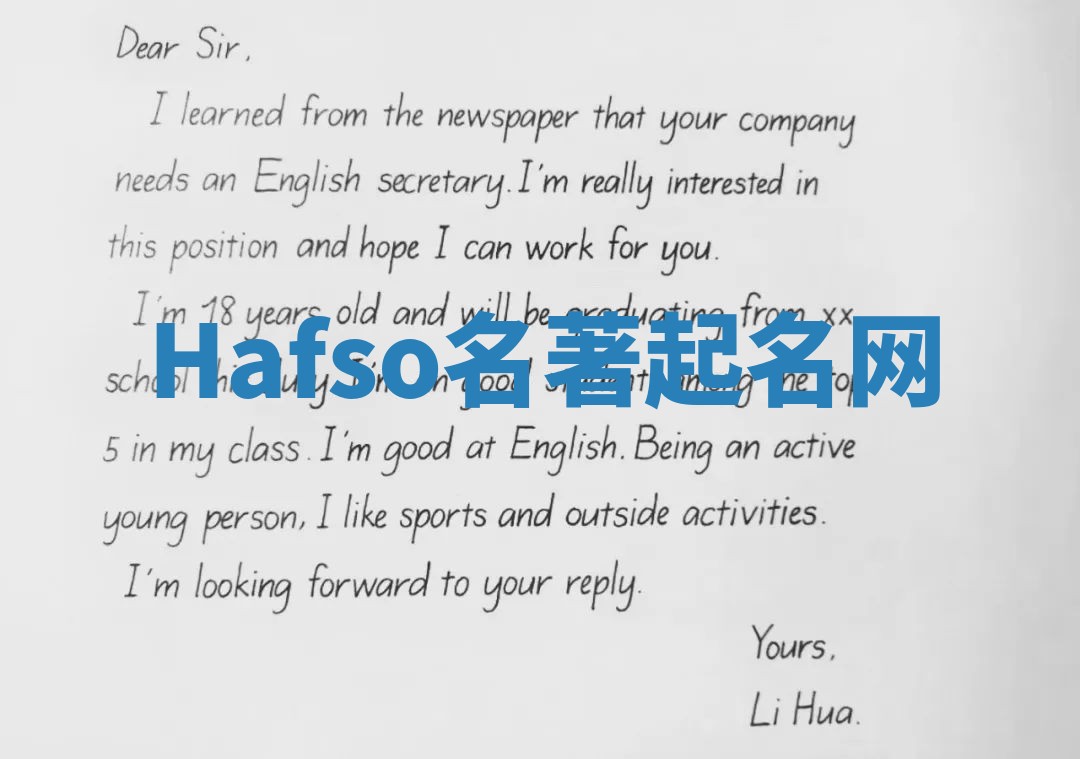 Dear Sir,
I learned from the newspaper that your company
needs an English secretary. I'm really interested in
this position and hope I can work for you.
I'm 18 years old and will be graduating from xx
Hafso名著起名网
school this July. I'm a good student, among the top
5 in my class. I'm good at English. Being an active
young person, I like sports and outside activities.
I'm looking forward to your reply.
Yours,
Li Hua.